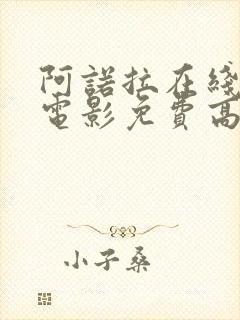 阿諾拉在綫
電影免費高
小子桑